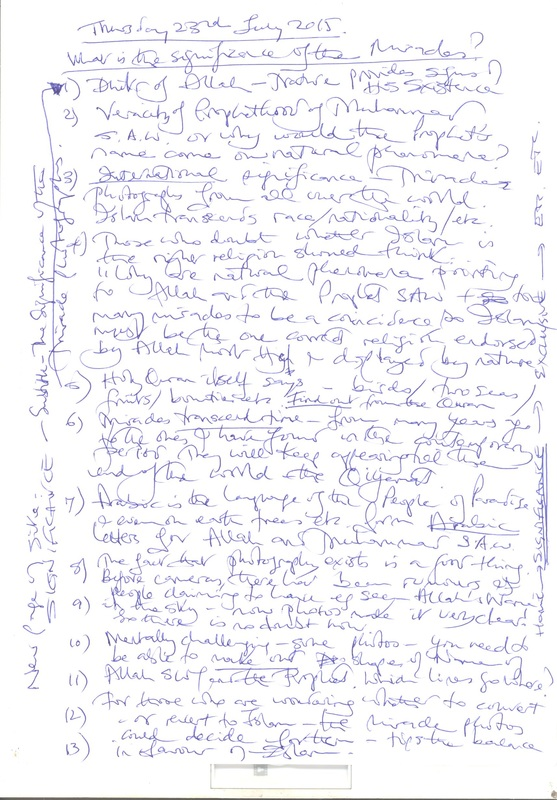 Thursday 23rd July 2015.
What is the significance of the Miracles?
1) Unity of Allah – Nature provides signs of
His Existence
2) Veracity of Prophethood of Muhammad
S.A.W. or why would the Prophet's
name come on natural phenomena?
3) International significance – Miracles
photographs from all over the world.
Islam transcends race/nationality/etc.
4) Those who doubt whether Islam is
the right religion should think
"Why are natural phenomena pointing
to Allah and the Prophet SAW – too
many miracles to be a coincidence so Islam
must be the one correct religion endorsed
by Allah Most High & displayed by nature
5) Holy Quran itself says – birds/two seas/
fruits/bounties etc. Find out from the Quran
6) Miracles transcend time – from many years ago
to the ones I have found in the contemporary
period. They will keep appearing till the
end of the world – the Qiyamat
7) Arabic is the language of the People of Paradise
& even on earth trees etc. form Arabic
letters for Allah and Muhammad S.A.W.
8) The fact that photography exists is a good thing.
Before cameras there have been rumours of
9) people claiming to have eg seen Allah's Name
in the sky – now photos make it very clear
so there is no doubt now.
10) Mentally challenging – some photos – you need to
be able to make out shapes of Name of
11) Allah SWT and the Prophet. Which lines go where?
For those who are wondering whether to convert
12) – or revert to Islam – the miracle photos
could decide for them – tips the balance
13) in favour of Islam.
New Page of Site: SIGNIFICANCE – Subtitle – The Significance of the
Miracle Photographs.
Home → SIGNIFICANCE → EXCLUSIVE → ETC. ETC.